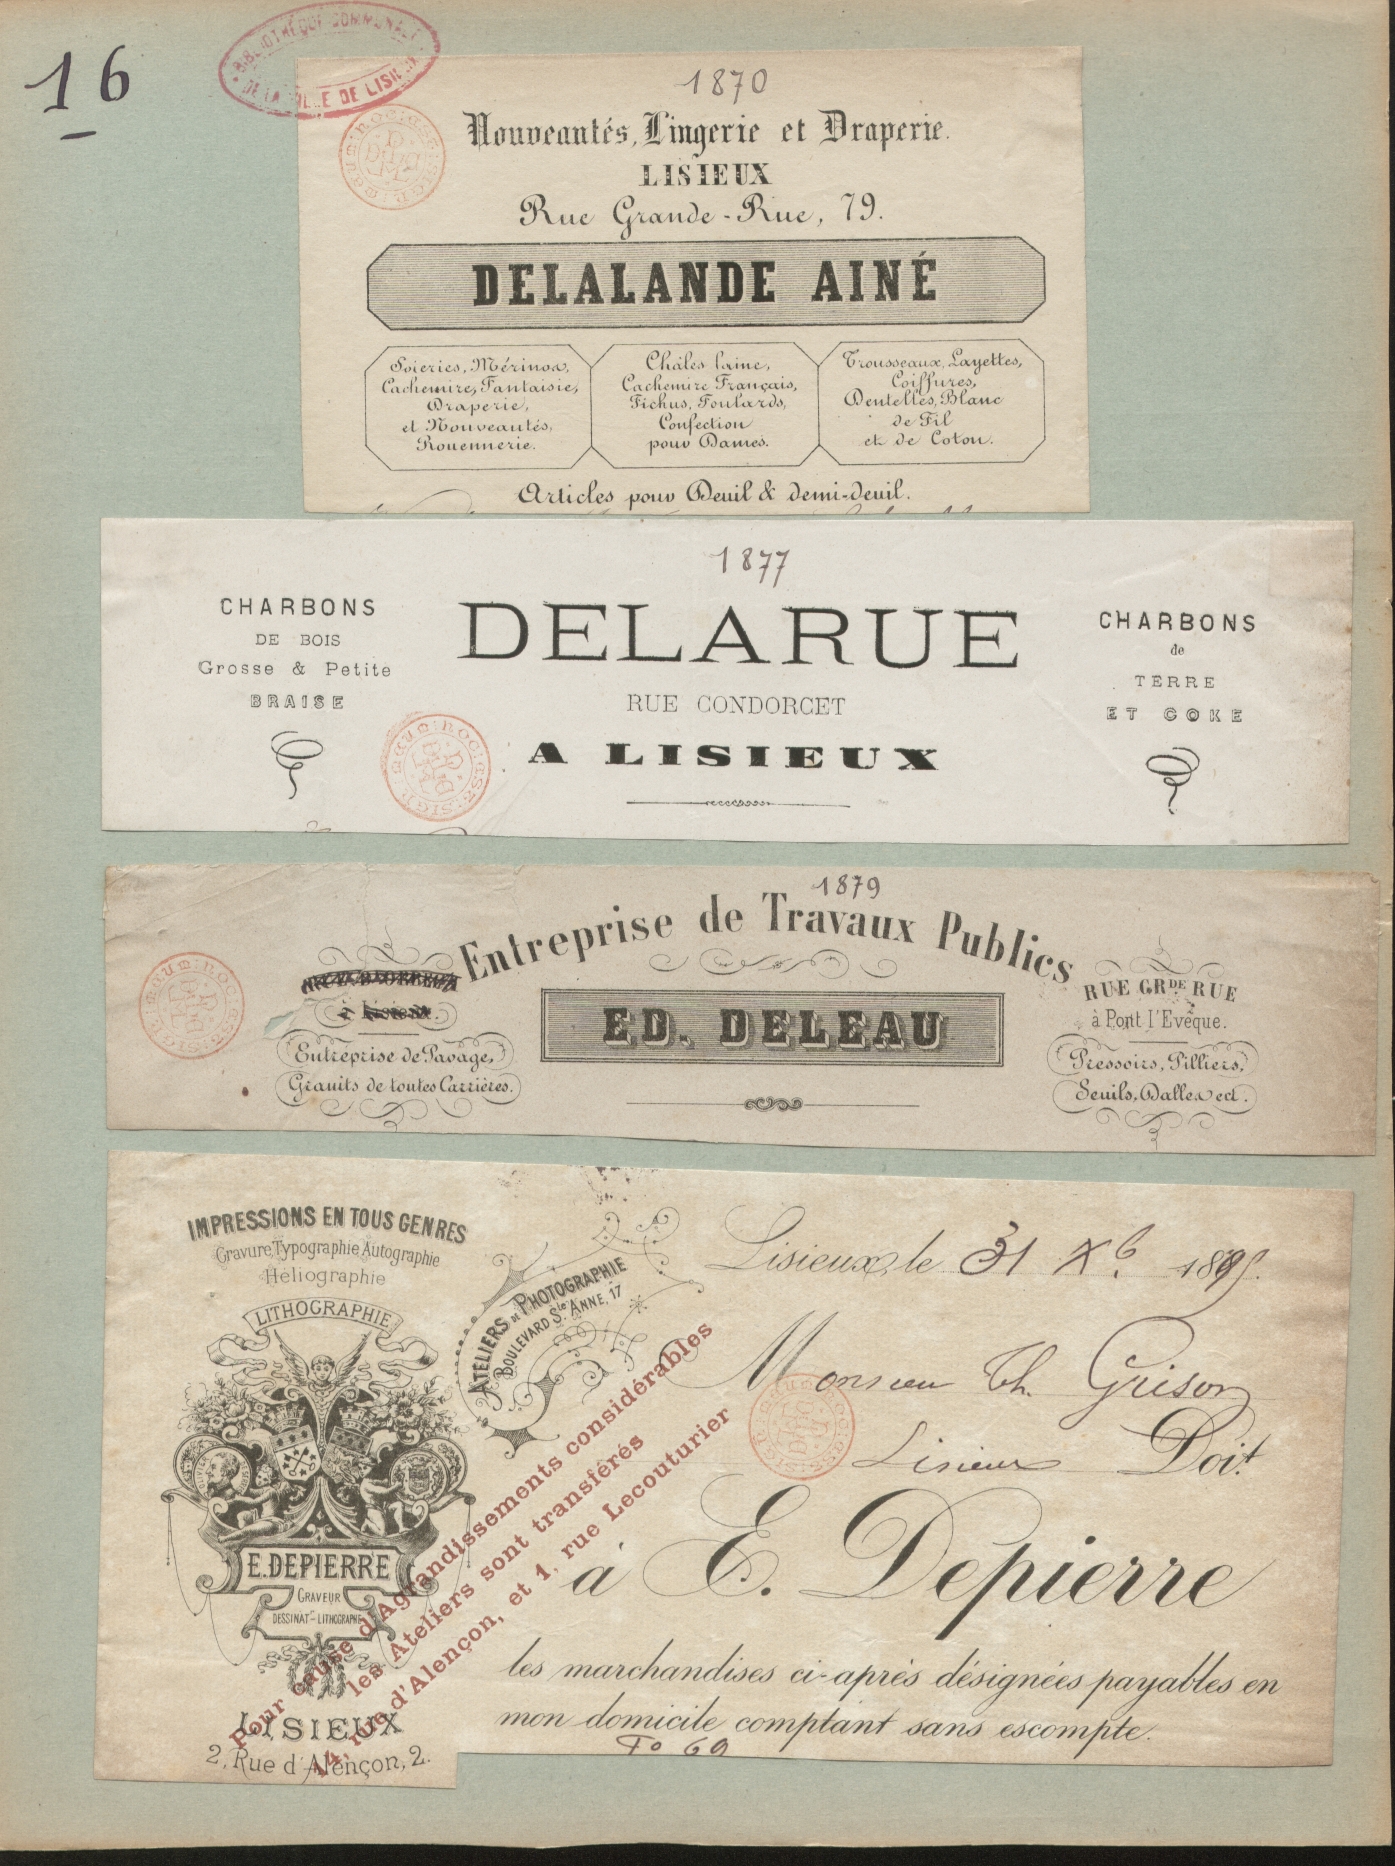 16
BIBLIOTHÈQUE COMMUNALE
DE LA VILLE DE LISIEUX
1870
Nouveautés, Lingerie et Draperie.
LISIEUX
Rue Grande-Rue, 79.
DELALANDE AINÉ
Soieries, Mérinos,
Cachemire, Fantaisie,
Draperie,
et Nouveautés,
Rouennerie.
Châles laine,
Cachemire Français,
Fichus, Foulards,
Confection
pour Dames.
Trousseaux, Layettes,
Coiffures,
Dentelles, Blanc
de Fil
et de Coton.
Articles pour Deuil & demi-deuil.
1877
CHARBONS
DE BOIS
Grosse & Petite
BRAISE
DELARUE
RUE CONDORCET
A LISIEUX
CHARBONS
de
TERRE
ET COKE
1879
Entreprise de Travaux Publics
à Lisieux.
Entreprise de Pavage,
Granits de toutes Carrières.
ED. DELEAU
RUE GRDE RUE
à Pont l'Evêque.
Pressoirs, Pilliers,
Seuils, Dalles, ect.
IMPRESSIONS EN TOUS GENRES
Gravure, Typographie, Autographie
Héliographie
LITHOGRAPHIE
E. DEPIERRE
GRAVEUR
DESSINATR-LITHOGRAPHE
LISIEUX
2, Rue d'Alençon, 2.
ATELIERS DE PHOTOGRAPHIE
BOULEVARD Ste ANNE, 17
Pour cause d'Agrandissements considérables
les Ateliers sont transférés
14, rue d'Alençon, et 1, rue Lecouturier
Lisieux, le 31 Xb. 1895.
Monsieur Th. Grison
Lisieux Doit
à E. Depierre
les marchandises ci-après désignées payables en
mon domicile comptant sans escompte.
Fo 69